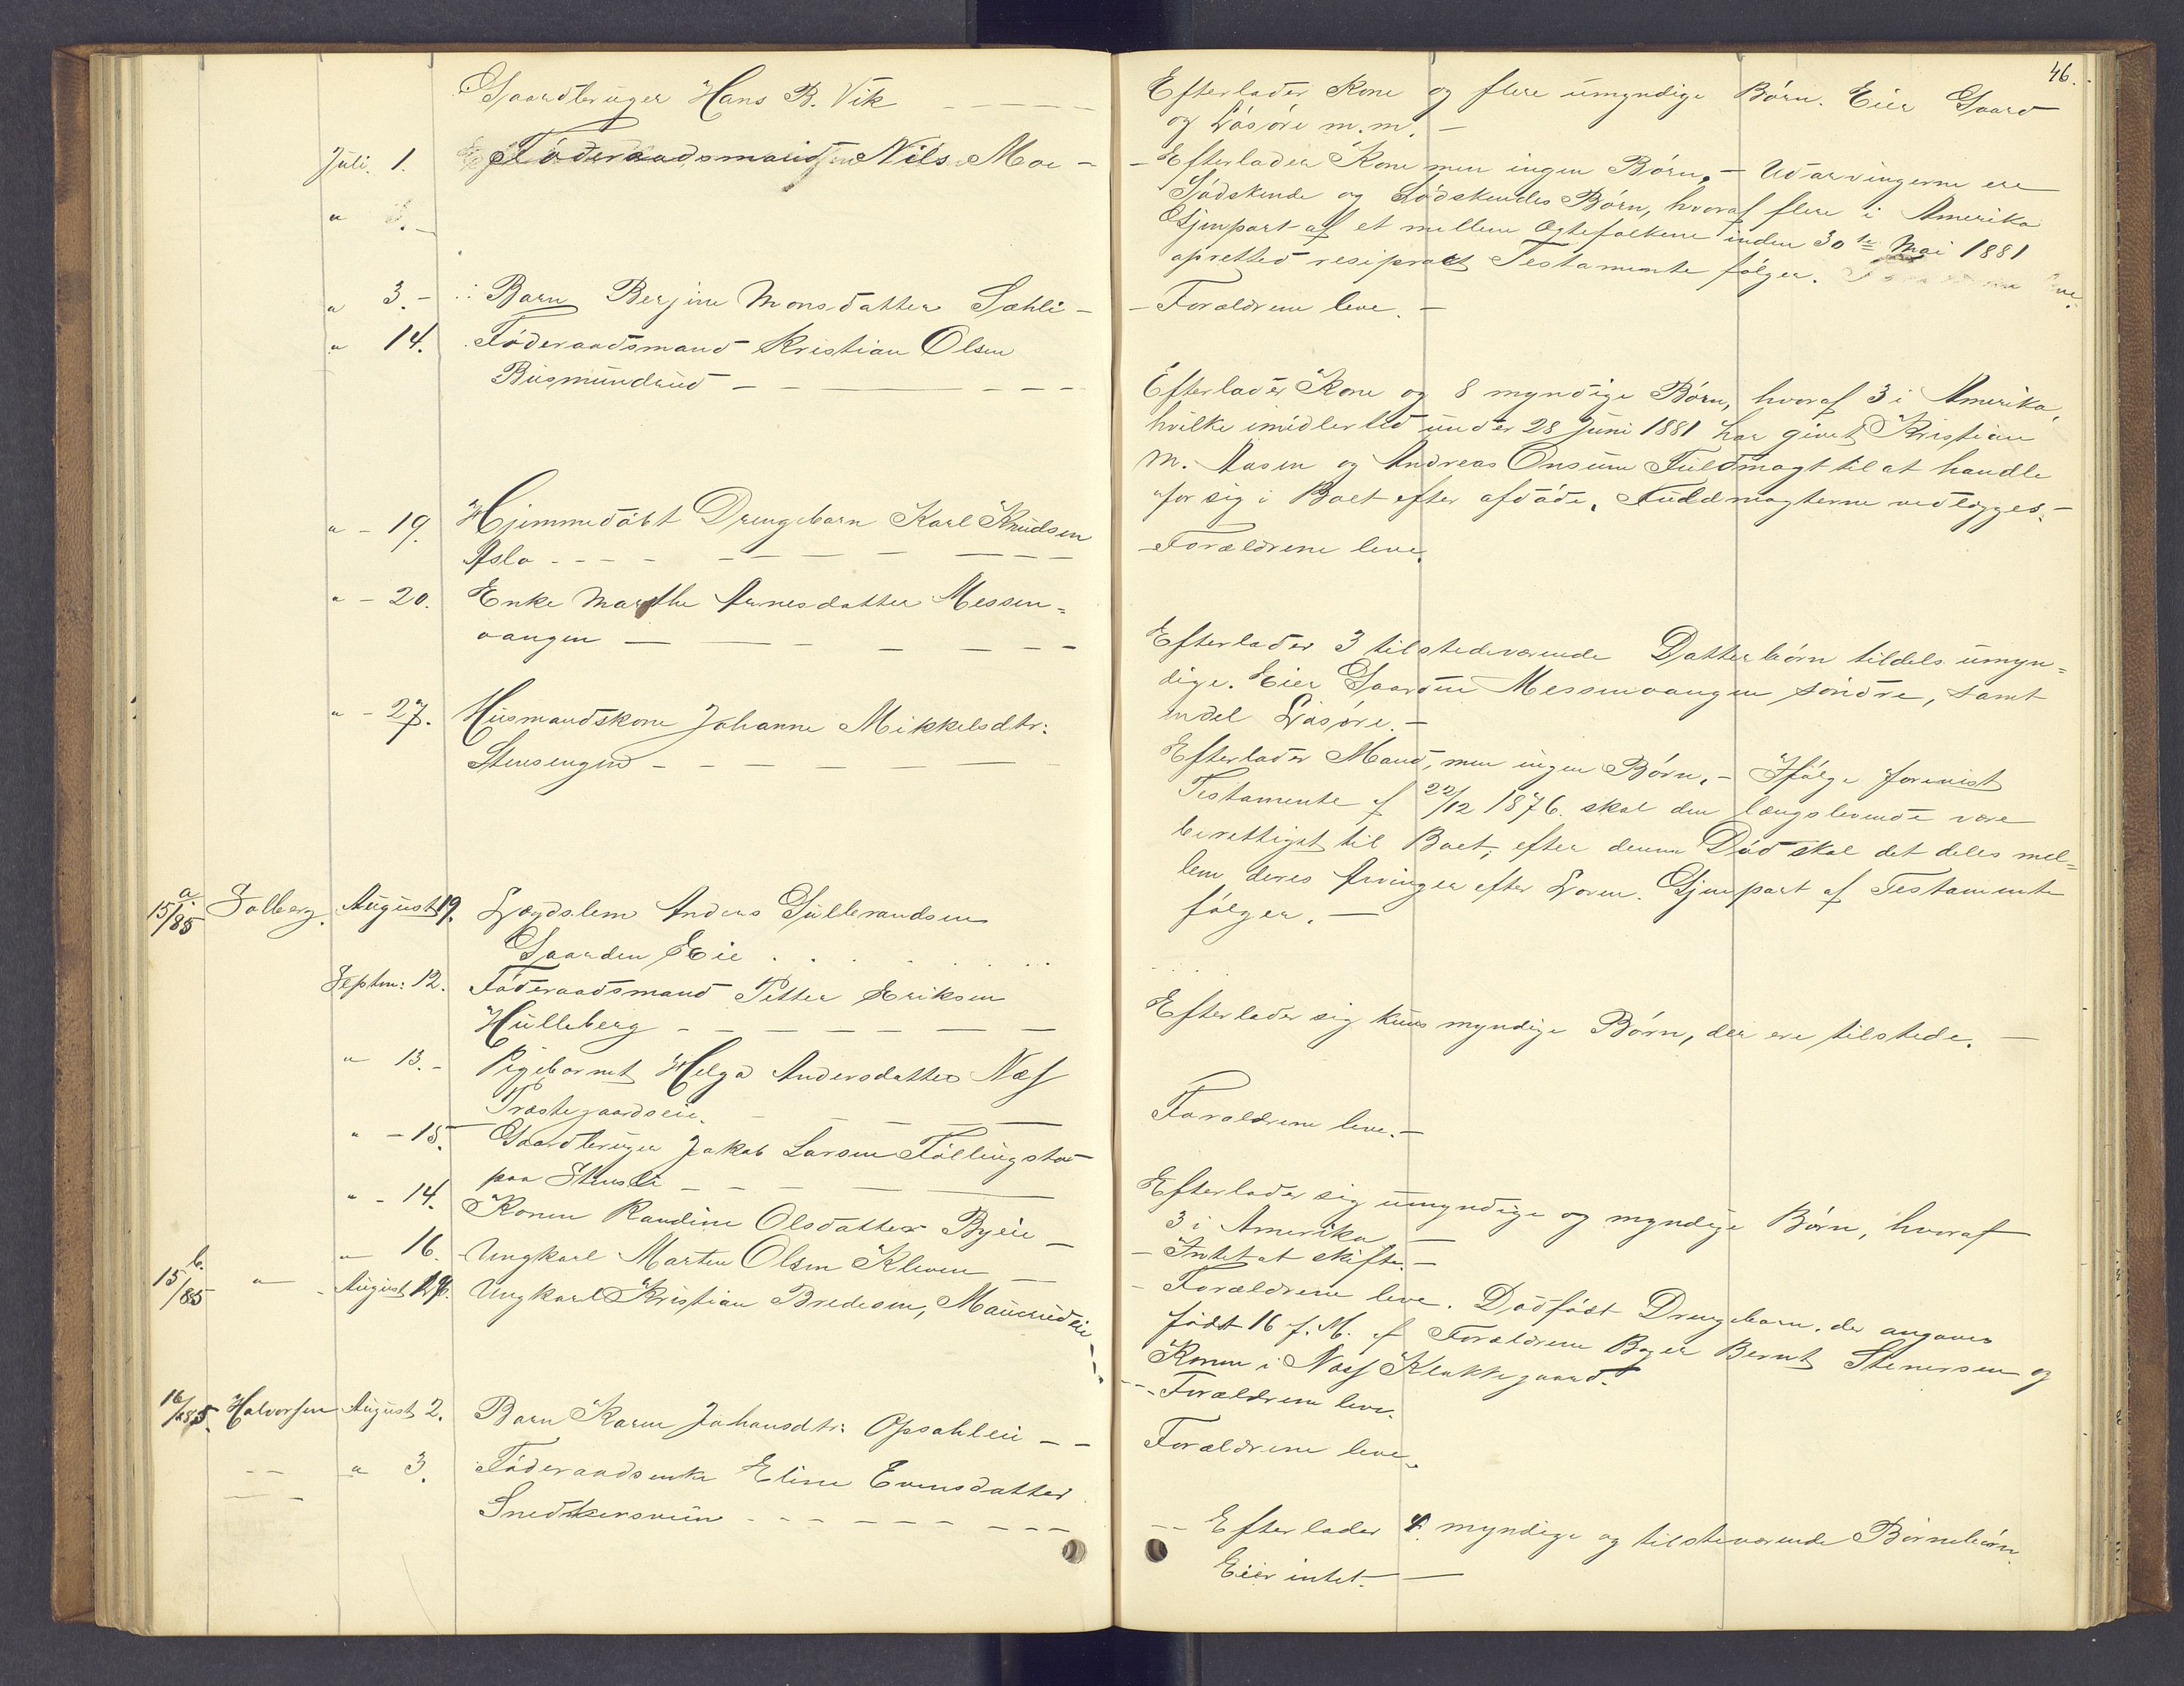 Gaardbruger Hans B. Vik
Juli. 1. Føderaadsmand Nils Moe -
" 3. -
" 3. - Barn Berjine Monsdatter Sæhli -
" 14. Føderaadsmand Kristian Olsen
Busmundrud
" - 19. Hjemmedøbt Drengebarn Karl Knudsen
Asla
" - 20. Enke Marthe Arnesdatter Messen=
vangen
" - 27. Husmandskone Johanne Mikkelsdtr:
Stensengen
a
15/85 Solberg. August 19. Lægdslem Anders Gulbrandsen
Gaarden Eie
Septm: 12. Føderaadsmand Petter Eriksen
Hulleberg
" 13. - Pigebarnet Helga Andersdatter Næs
Prestegaardseie.
" - 15. Gaardbruger Jakob Larsen Føllingstad
paa Stensli
" - 14. Konen Randine Olsdatter Byeie -
" 16. Ungkarl Marten Olsen Kleven
b.
15/85 " August 19. Ungkarl Kristian Bredesen, Maurudeie
16/85. Halvorsen August 2. Barn Karen Johansdtr: Opsahleie
" 3. Føderaadsenke Eline Evensdatter
Snedkersveen
46.
Efterlader Kone og flere umyndige Børn. Eier Gaard
og Løsøre m.m. -
- Efterlader Kone men ingen Børn. - Udarvingerne ere
Sødskende og Sødskendes Børn, hvoraf flere i Amerika
Gjenpart af et mellem Ægtefolkene under 30te Mai 1881
oprettet resiprokt Testamente følger.
- Forældrene leve. -
Efterlader Kone og 8 myndige Børn, hvoraf 3 i Amerika,
hvilke imidlertid under 28 Juni 1881 har givet Kristian
M. Aasen og Andreas Onsum Fuldmagt til at handle
for sig i Boet efter afdøde. Fuldmagterne vedlægges. -
- Forældrene leve.
Efterlader 3 tilstedeværende Datterbørn tildels umyn=
dige. Eier Gaarden Messenvangen søndre, samt
endel Løsøre. -
Efterlader Mand, men ingen Børn. - Ifølge forevist
Testamente af 22/12 1876. skal den længslevende være
berettiget til Boet; efter dennes Død skal det deles mel=
lem deres Arvinger efter Loven. Gjenpart af Testamente
følger. -
Efterlader sig kuns myndige Børn, der ere tilstede. -
Forældrene leve. -
Efterlader sig umyndige og myndige Børn, hvoraf
3 i Amerika -
- Intet at skifte. -
- Forældrene leve. Dødfødt Drengebarn, der angaves
født 16 f. M. af Forældrene Bager Bernt Stenersen og
Konen i Næs Klokkegaard.
- Forældrene leve.
Forældrene leve.
Efterlader 4 myndige og tilsteværende Børnebørn
Eier intet. -